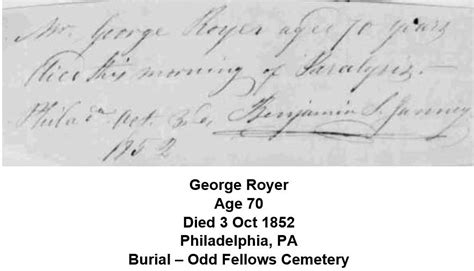 Mr. George Royer aged 70 years
died this morning of Paralysis.—
Philada. Oct. 3d, Benjamin S. Janney
1852
George Royer
Age 70
Died 3 Oct 1852
Philadelphia, PA
Burial – Odd Fellows Cemetery